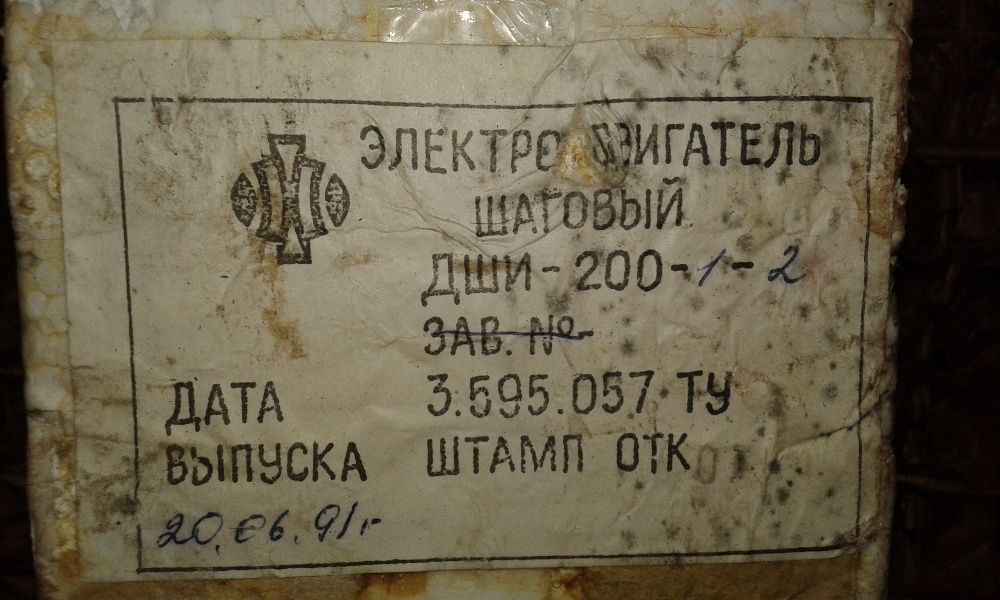 ЭЛЕКТРОДВИГАТЕЛЬ
ШАГОВЫЙ
ДШИ-200-1-2
ЗАВ. №
3.595.057 ТУ
ДАТА
ВЫПУСКА
ШТАМП ОТК
20.06.91г.